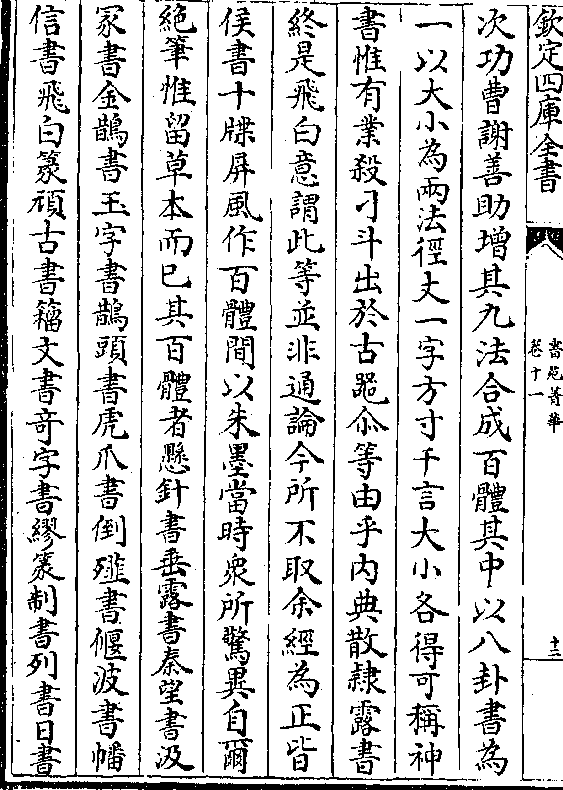 欽定四庫全書
書苑菁華
卷十一
十三
次功曹謝善助增其九法合成百體其中以八卦書為
一以大小為兩法徑丈一字方寸千言大小各得可稱神
書惟有業殺刁斗出於古器尒等由乎內典散隸露書
終是飛白意謂此等並非通論今所不取余經為正皆
侯書十牒屏風作百體間以朱墨當時衆所驚異自爾
絶筆惟留草本而已其百體者懸針書垂露書秦望書汲
冢書金鵲書玉字書鵠頭書虎爪書倒薤書偃波書幡
信書飛白篆頏古書籕文書竒字書繆篆制書列書日書